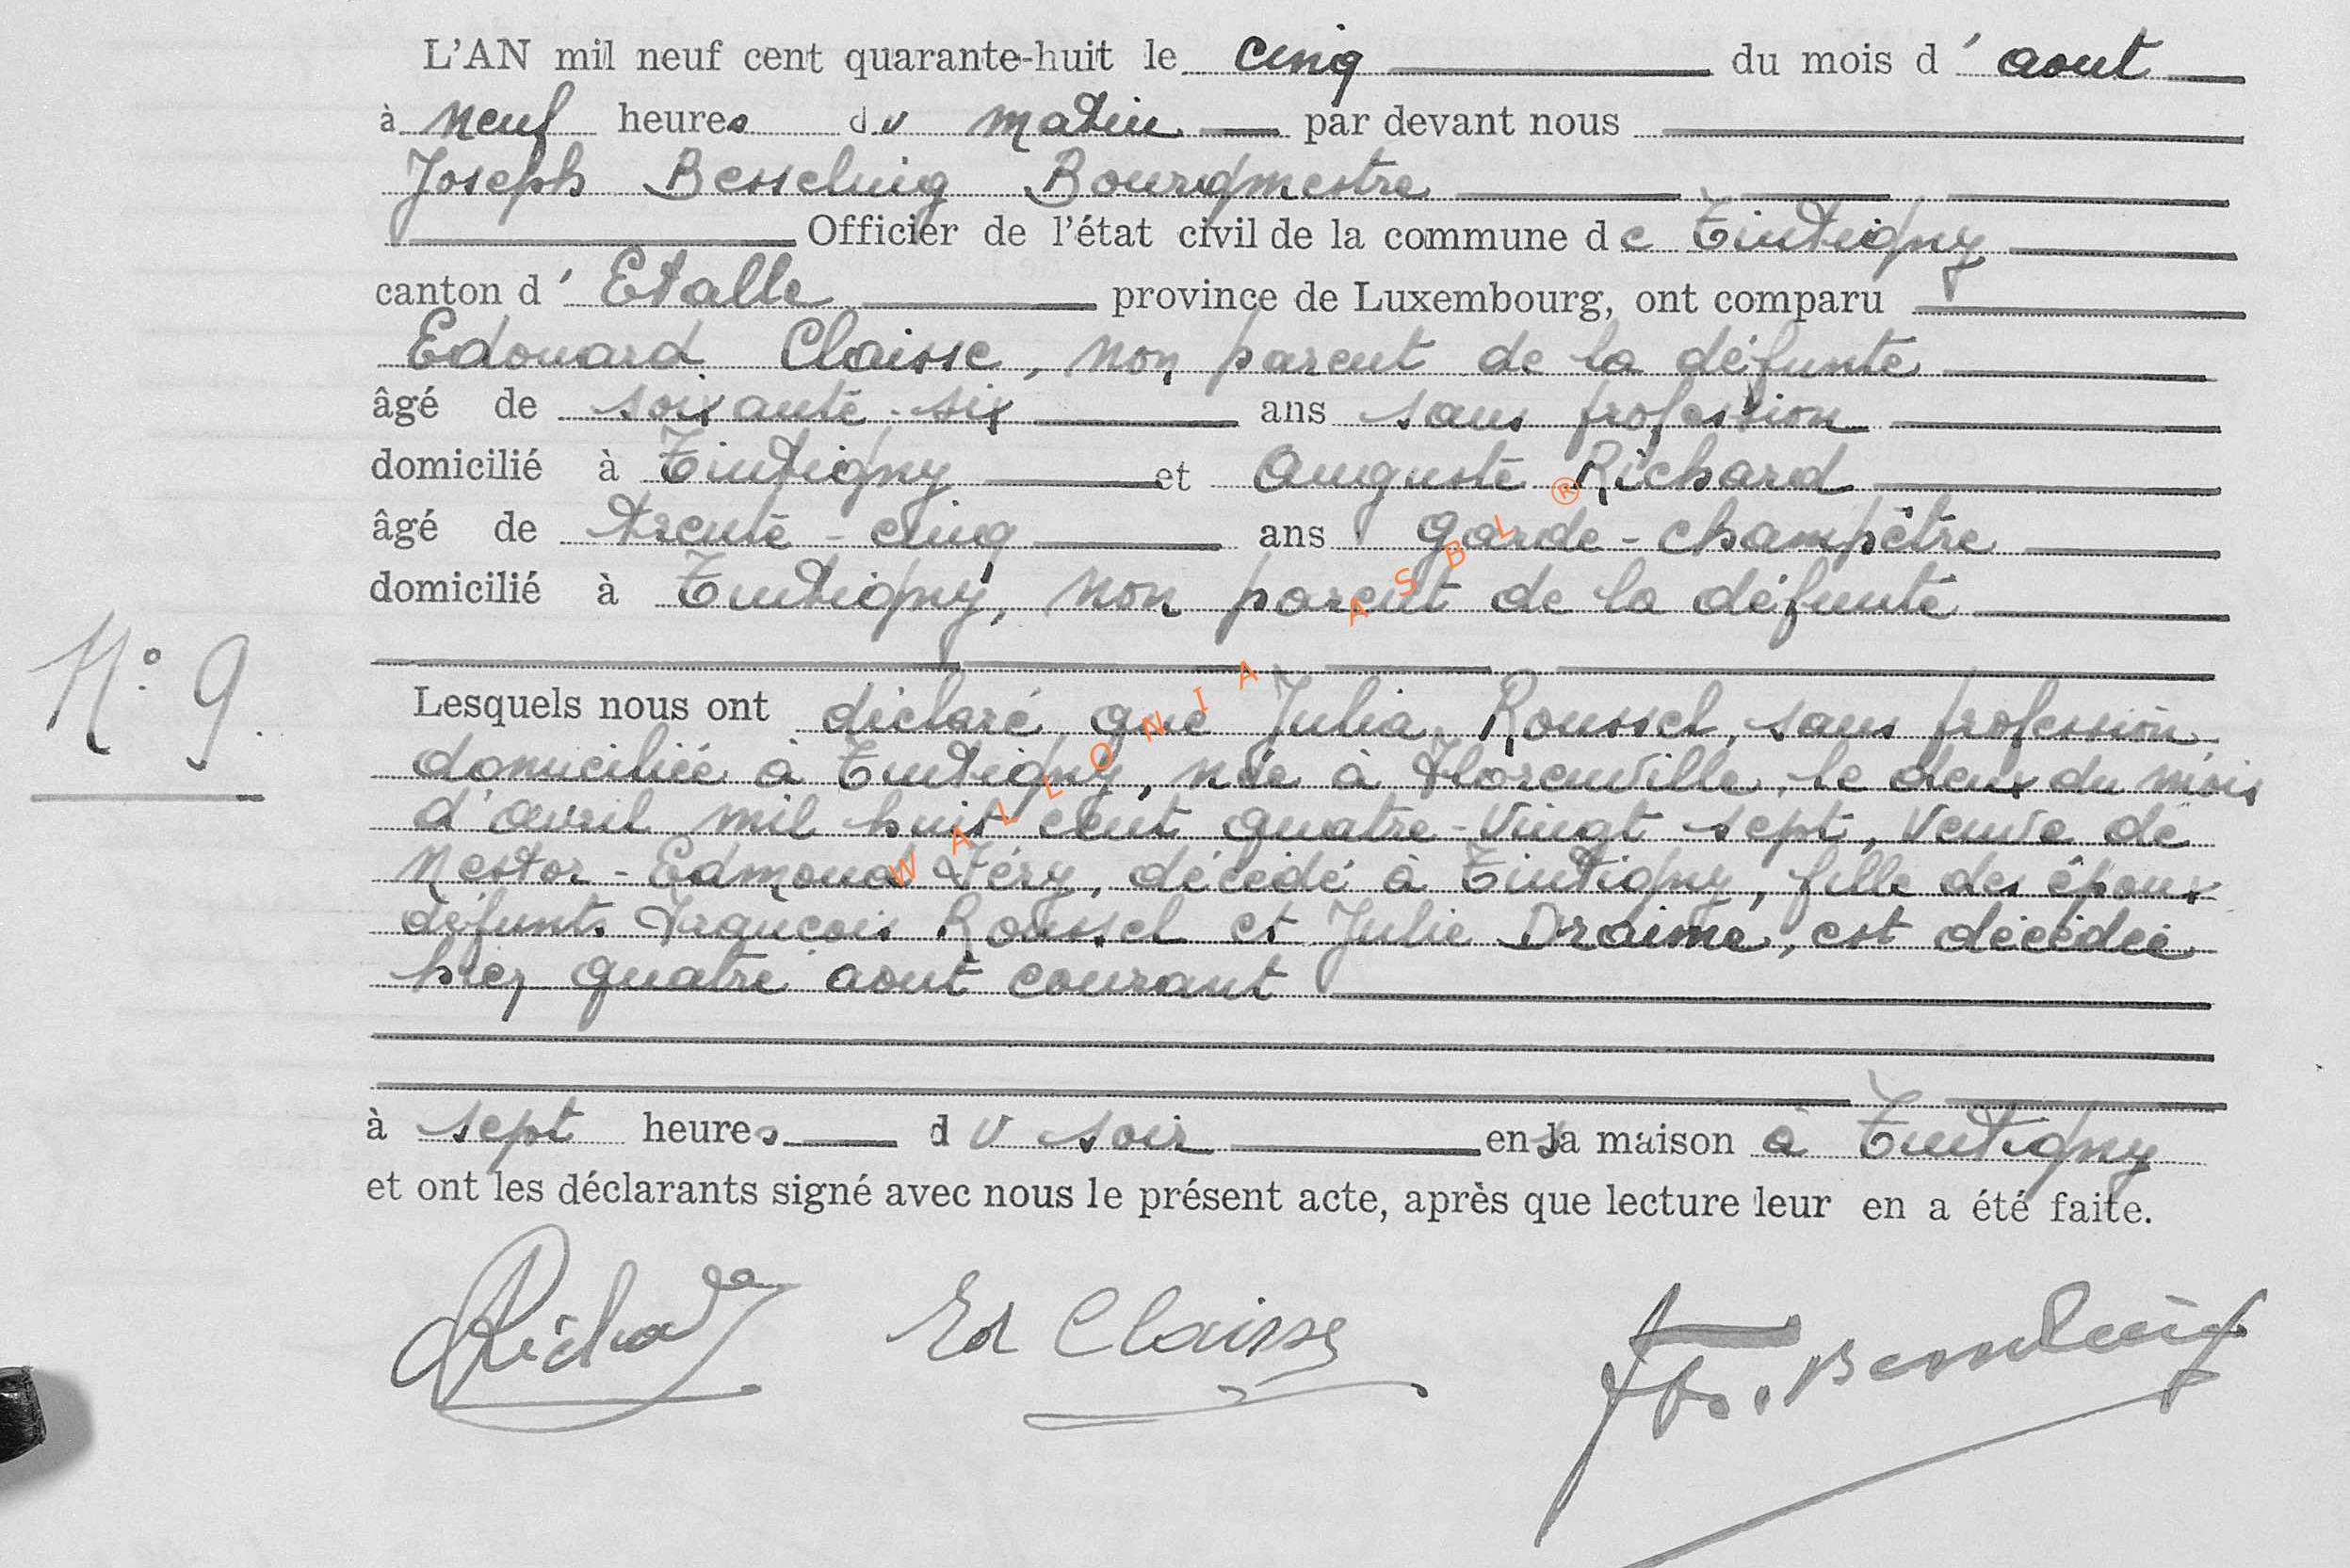 L'AN mil neuf cent quarante-huit le cinq du mois d' aout
à neuf heures du matin par devant nous
Joseph Besseling Bourgmestre
Officier de l'état civil de la commune de Tintigny
canton d' Etalle province de Luxembourg, ont comparu
Edouard Claisse, non parent de la défunte
âgé de soixante-six ans sans profession
domicilié à Tintigny et Auguste Richard
âgé de trente-cinq ans garde-champêtre
domicilié à Tintigny, non parent de la défunte
N° 9.
Lesquels nous ont déclaré que Julia Roussel, sans profession,
domiciliée à Tintigny, née à Florenville, le deux du mois
d'avril mil huit cent quatre-vingt sept, veuve de
Nestor-Edmond Féry, décédé à Tintigny, fille des époux
défunts François Roussel et Julie Draime, est décédée
hier quatre aout courant
à sept heures du soir en sa maison à Tintigny
et ont les déclarants signé avec nous le présent acte, après que lecture leur en a été faite.
Richard Ed Claisse Jos. Besseling
WALLONIA ASBL ®